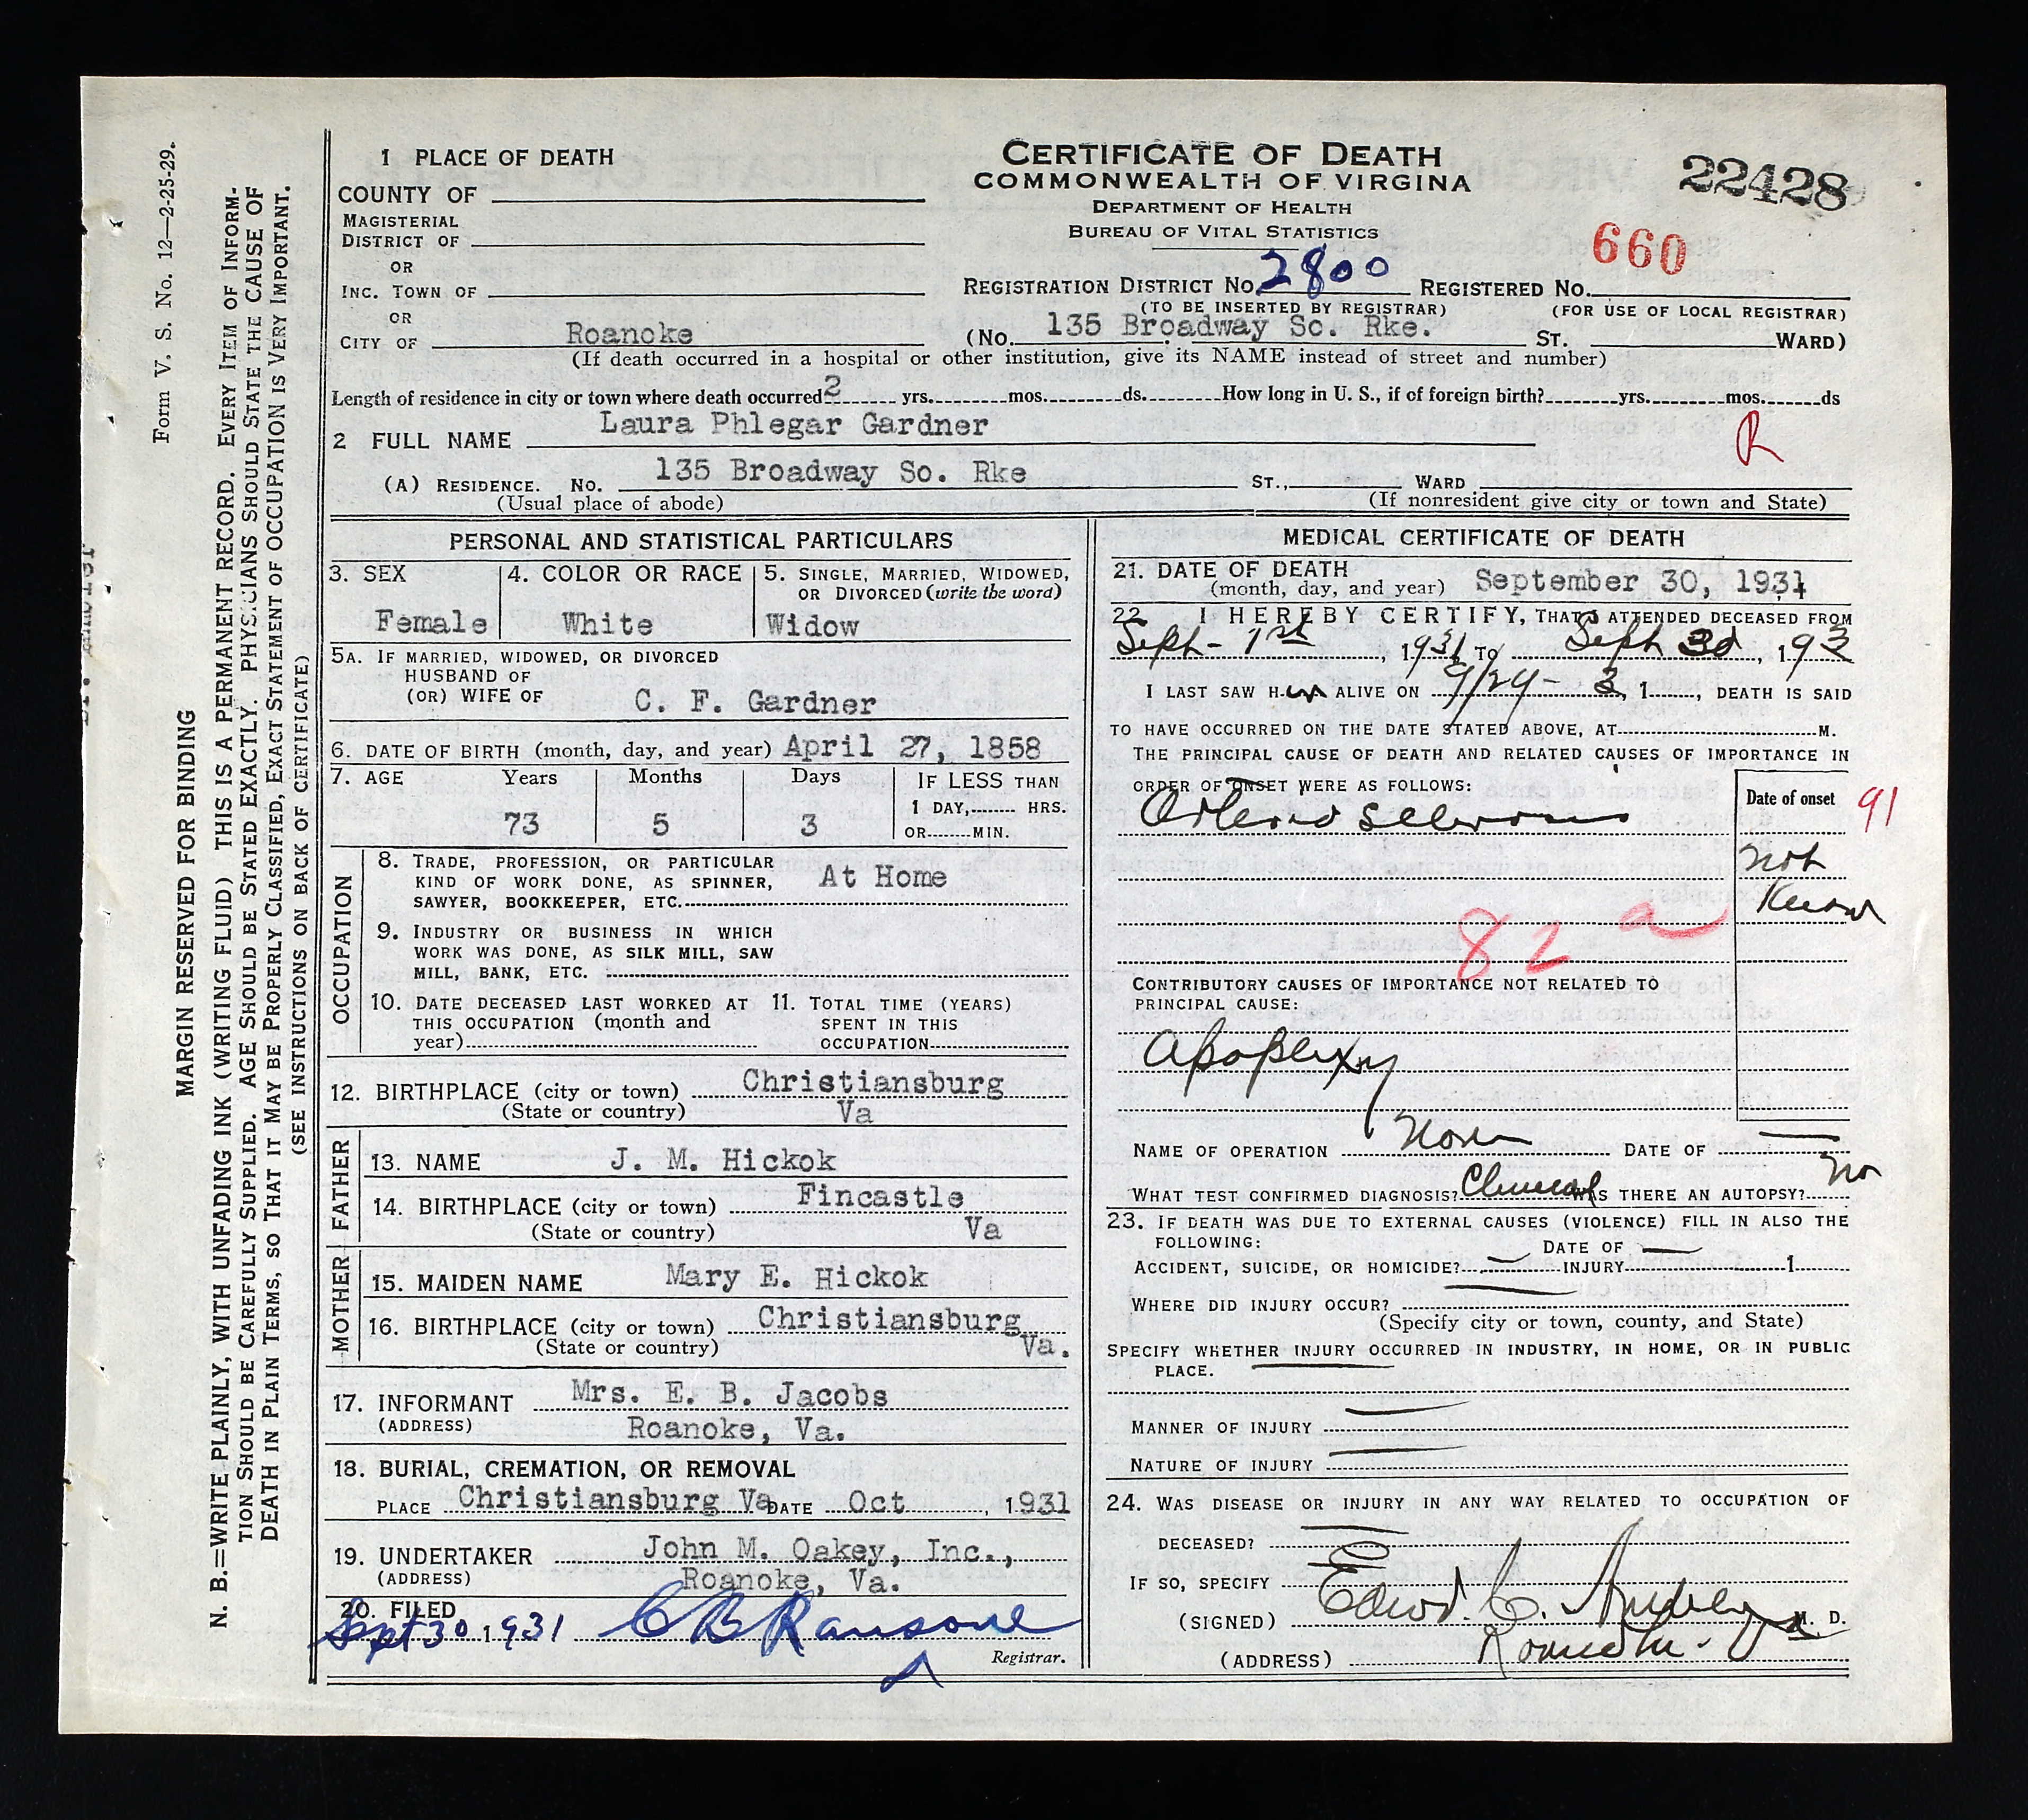 Form V. S. No. 12—2-25-29.
MARGIN RESERVED FOR BINDING
N. B.=WRITE PLAINLY, WITH UNFADING INK (WRITING FLUID) THIS IS A PERMANENT RECORD. EVERY ITEM OF INFORM-
TION SHOULD BE CAREFULLY SUPPLIED. AGE SHOULD BE STATED EXACTLY. PHYSICIANS SHOULD STATE THE CAUSE OF
DEATH IN PLAIN TERMS, SO THAT IT MAY BE PROPERLY CLASSIFIED, EXACT STATEMENT OF OCCUPATION IS VERY IMPORTANT.
(SEE INSTRUCTIONS ON BACK OF CERTIFICATE)
1 PLACE OF DEATH
COUNTY OF
MAGISTERIAL
DISTRICT OF
OR
INC. TOWN OF
OR
CITY OF Roanoke
CERTIFICATE OF DEATH
COMMONWEALTH OF VIRGINA
DEPARTMENT OF HEALTH
BUREAU OF VITAL STATISTICS
22428
660
REGISTRATION DISTRICT NO. 2800 REGISTERED NO.
(TO BE INSERTED BY REGISTRAR) (FOR USE OF LOCAL REGISTRAR)
(NO. 135 Broadway So. Rke. ST. WARD)
(If death occurred in a hospital or other institution, give its NAME instead of street and number)
Length of residence in city or town where death occurred 2 yrs. mos. ds. How long in U. S., if of foreign birth? yrs. mos. ds
2 FULL NAME Laura Phlegar Gardner
R
(A) RESIDENCE. NO. 135 Broadway So. Rke ST., WARD
(Usual place of abode) (If nonresident give city or town and State)
PERSONAL AND STATISTICAL PARTICULARS
3. SEX 4. COLOR OR RACE 5. SINGLE, MARRIED, WIDOWED,
OR DIVORCED (write the word)
Female White Widow
5A. IF MARRIED, WIDOWED, OR DIVORCED
HUSBAND OF
(OR) WIFE OF C. F. Gardner
6. DATE OF BIRTH (month, day, and year) April 27, 1858
7. AGE Years Months Days IF LESS THAN
1 DAY, HRS.
73 5 3 OR MIN.
OCCUPATION
8. TRADE, PROFESSION, OR PARTICULAR
KIND OF WORK DONE, AS SPINNER, At Home
SAWYER, BOOKKEEPER, ETC.
9. INDUSTRY OR BUSINESS IN WHICH
WORK WAS DONE, AS SILK MILL, SAW
MILL, BANK, ETC.
10. DATE DECEASED LAST WORKED AT 11. TOTAL TIME (YEARS)
THIS OCCUPATION (month and SPENT IN THIS
year) OCCUPATION
12. BIRTHPLACE (city or town) Christiansburg
(State or country) Va
FATHER
13. NAME J. M. Hickok
14. BIRTHPLACE (city or town) Fincastle
(State or country) Va
MOTHER
15. MAIDEN NAME Mary E. Hickok
16. BIRTHPLACE (city or town) Christiansburg
(State or country) Va.
17. INFORMANT Mrs. E. B. Jacobs
(ADDRESS) Roanoke, Va.
18. BURIAL, CREMATION, OR REMOVAL
PLACE Christiansburg Va DATE Oct , 1931
19. UNDERTAKER John M. Oakey, Inc.,
(ADDRESS) Roanoke, Va.
20. FILED
Sept 30 1931 C B Ransone
Registrar.
MEDICAL CERTIFICATE OF DEATH
21. DATE OF DEATH
(month, day, and year) September 30, 1931
22 I HEREBY CERTIFY, THAT I ATTENDED DECEASED FROM
Sept- 1st, 1931 TO Sept 30, 193
I LAST SAW HER ALIVE ON 9/29- 3, 1 , DEATH IS SAID
TO HAVE OCCURRED ON THE DATE STATED ABOVE, AT M.
THE PRINCIPAL CAUSE OF DEATH AND RELATED CAUSES OF IMPORTANCE IN
ORDER OF ONSET WERE AS FOLLOWS:
Date of onset
91
not
Know
82 a
CONTRIBUTORY CAUSES OF IMPORTANCE NOT RELATED TO
PRINCIPAL CAUSE:
Apoplexy
NAME OF OPERATION None DATE OF —
WHAT TEST CONFIRMED DIAGNOSIS? Clinical WAS THERE AN AUTOPSY? no
23. IF DEATH WAS DUE TO EXTERNAL CAUSES (VIOLENCE) FILL IN ALSO THE
FOLLOWING:
DATE OF
ACCIDENT, SUICIDE, OR HOMICIDE? — INJURY 1
WHERE DID INJURY OCCUR?
(Specify city or town, county, and State)
SPECIFY WHETHER INJURY OCCURRED IN INDUSTRY, IN HOME, OR IN PUBLIC
PLACE.
MANNER OF INJURY
NATURE OF INJURY
24. WAS DISEASE OR INJURY IN ANY WAY RELATED TO OCCUPATION OF
DECEASED?
IF SO, SPECIFY
(SIGNED) M. D.
(ADDRESS)